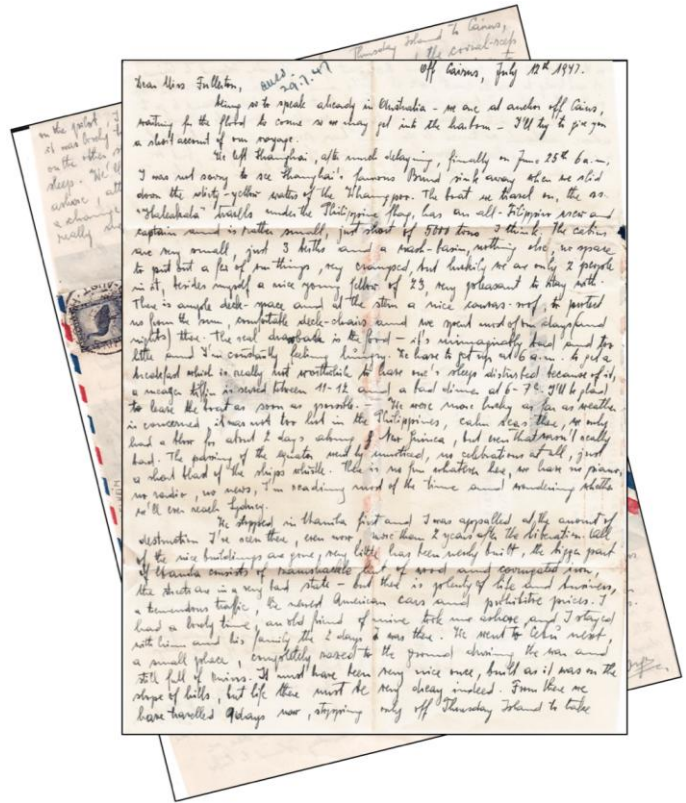 Off Cairns, July 12th 1947.
Dear Miss Fullerton,
29.7.47
being so to speak already in Australia - we are at anchor off Cairns,
waiting for the flood to come so we may get into the harbour - I'll try to give you
a short account of our voyage.
We left Shanghai, after much delaying, finally on June 25th 6 a.m.
I was not sorry to see Shanghai's famous Bund sink away when we slid
down the dirty-yellow waters of the Whangpoo. The boat we travel on, the ss.
"Haleakala" travels under the Philippine flag, has an all-Filipino crew and
captain and is rather small, just short of 5000 tons I think. The cabins
are very small, just 3 berths and a wash-basin, nothing else, no space
to put out a few of our things, very cramped, but luckily we are only 2 people
in it, besides myself a nice young fellow of 23, very pleasant to stay with.
There is ample deck-space and at the stern a nice canvas-roof, to protect
us from the sun, comfortable deck-chairs and we spend most of our days (and
nights) there. The real drawback is the food - it's unimaginably bad and too
little and I'm constantly feeling hungry. We have to get up at 6 a.m. to get a
breakfast which is really not worthwhile to have one's sleep disturbed because of it,
a meager tiffin is served between 11-12 and a bad dinner at 6-7h. I'll be glad
to leave the boat as soon as possible. - We were more lucky as far as weather
is concerned, it was not too hot in the Philippines, calm seas there, we only
had a blow for about 2 days along New Guinea, but even that wasn't really
bad. The passing of the equator went by unnoticed, no celebrations at all, just
a short blast of the ships whistle. There is no fun whatever here, we have no piano,
no radio, no news, I'm reading most of the time and wondering whether
we'll ever reach Sydney.
We stopped in Manila first and I was appalled at the amount of
destruction I've seen there, even now more than 2 years after the liberation. All
of the nice buildings are gone, very little has been newly built, the bigger part
of Manila consists of ramshackle huts of wood and corrugated iron,
the streets are in a very bad state - but there is plenty of life and business,
a tremendous traffic, the newest American cars and prohibitive prices. I
had a lovely time, an old friend of mine took me ashore, and I stayed
with him and his family the 2 days I was there. We went to Cebu next,
a small place, completely razed to the ground during the war and
still full of ruins. It must have been very nice once, built as it was on the
slope of hills, but life there must be very dreary indeed. From there we
have travelled 9 days now, stopping only off Thursday Island to take
Thursday Island to Cairns,
the coral-reefs
on the pilot, I
it was lovely to
on the other s
sleep. We'll
ashore
a change
really